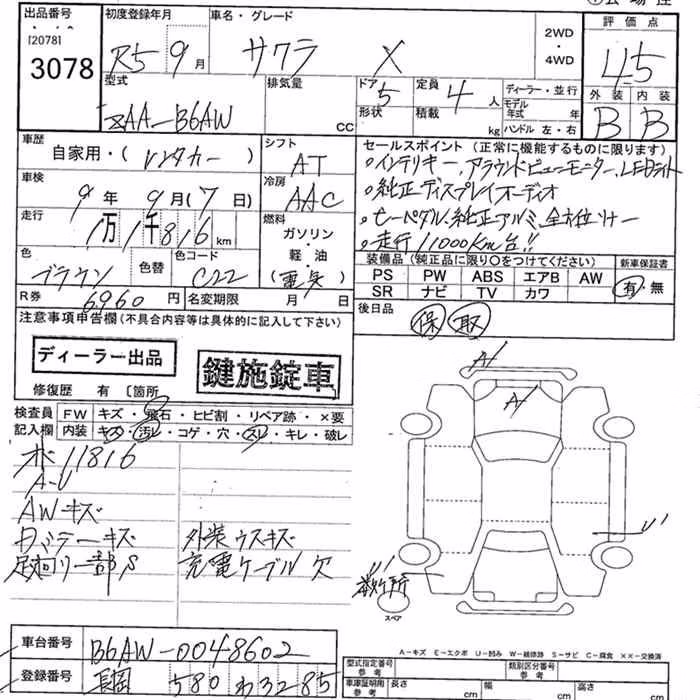 出品番号
[2078]
3078
初度登録年月
R5 9月
車名・グレード
サクラ X
2WD
・
4WD
評価点
4.5
外装 内装
B B
型式
ZAA-B6AW
排気量
CC
ドア 5
形状
定員 4 人
積載 kg
ディーラー・並行
モデル年式 年
ハンドル 左・右
車歴
自家用・(レンタカー)
シフト
AT
車検
9年 9月(7日)
冷房
AAC
走行
1万1千816km
燃料
ガソリン・
軽油
(電気)
色
ブラウン
色替
色コード
C22
R券 6960円
名変期限 月 日
セールスポイント(正常に機能するものに限ります)
○インテリキー、アラウンドビューモニター、LEDライト
○純正ディスプレイオーディオ
○セーペダル、純正アルミ、全方位ソナー
○走行11000Km台!!
装備品(純正品に限り○をつけてください)
PS PW ABS エアB AW
SR ナビ TV カワ
新車保証書
有・無
後日品
保 取
注意事項申告欄(不具合内容等は具体的に記入して下さい)
ディーラー出品
鍵施錠車
修復歴 有 〔箇所
検査員記入欄
FW キズ・飛石・ヒビ割・リペア跡・×要
内装 キズ・汚レ・コゲ・穴・スレ・キレ・破レ
11816
A・U
AWキズ
カバーキズ 外装ウスキズ
足廻り一部S 充電ケーブル欠
A
A
U
スペア
車台番号 B6AW-0048602
登録番号 580 わ3285
A-キズ E-エクボ U-凹み W-補修跡 S-サビ C-腐食 ××-交換済
型式指定番号 参考
類別区分番号 参考
車庫証明用 参考
長さ cm
幅 cm
高さ cm